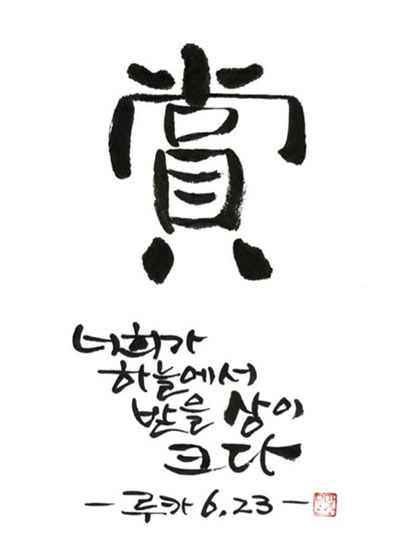 賞
너희가
하늘에서
받을 상이
크다
- 루카 6,23 -